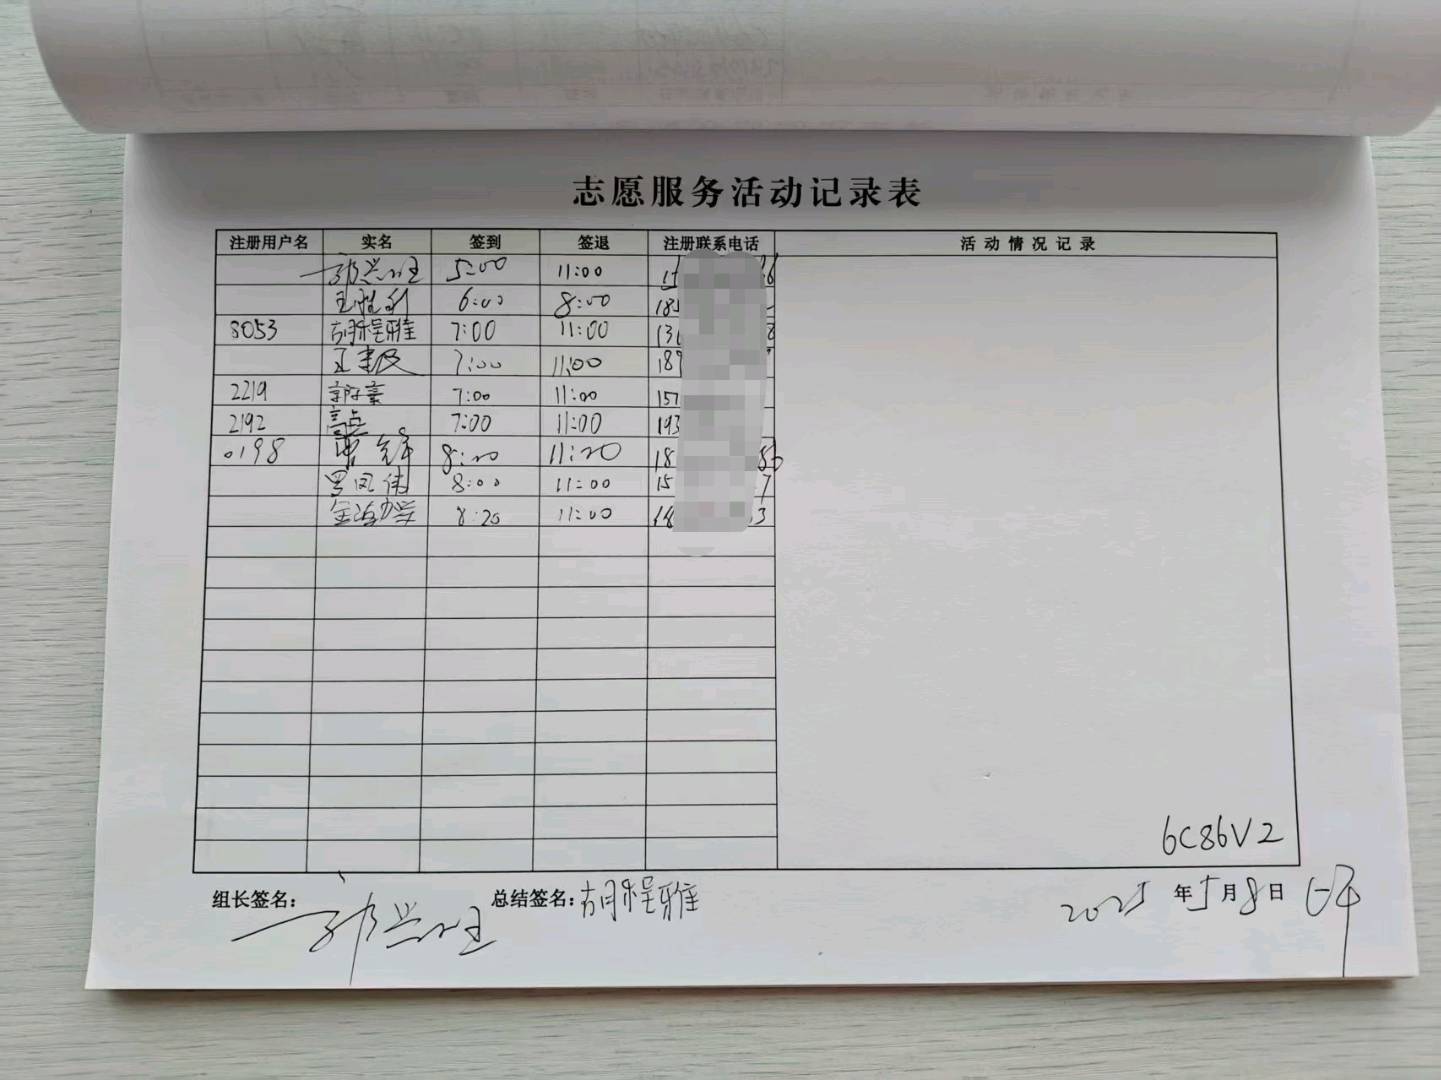 志愿服务活动记录表
注册用户名 实名 签到 签退 注册联系电话 活动情况记录
郭兴旺 5:00 11:00
6:00 8:00 185
8053 胡程雅 7:00 11:00 8
王 7:00 11:00 189
2219 7:00 11:00 157
2192 高点 7:00 11:00 193
0198 8:20 11:20 18
罗凤伟 8:00 11:00 15 7
8:20 11:00 18 3
6C86V2
组长签名: 郭兴旺 总结签名: 胡程雅 2025年5月8日